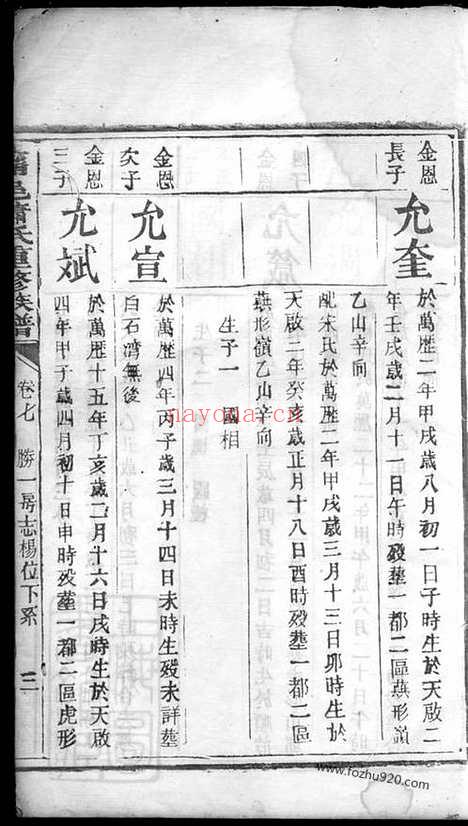 金恩
長子
允奎
於萬歷二年甲戌歲八月初一日子時生於天啟二
年壬戌歲二月十一日午時殁塟一都二區燕形嶺
乙山辛向
配宋氏於萬歷二年甲戌歲三月十三日卯時生於
天啟二年癸亥歲正月十八日酉時殁塟一都二區
燕形嶺乙山辛向
生子一 國相
金恩
次子
允宣
於萬歷四年丙子歲三月十四日未時生殁未詳塟
白石湾無後
金恩
三子
允斌
於萬歷十五年丁亥歲二月十六日戌時生於天啟
四年甲子歲四月初十日申時殁塟一都二區虎形
蕭氏重修族譜
卷七 勝一房志楊位下系 三
nayona.cn
www.fozhu920.com